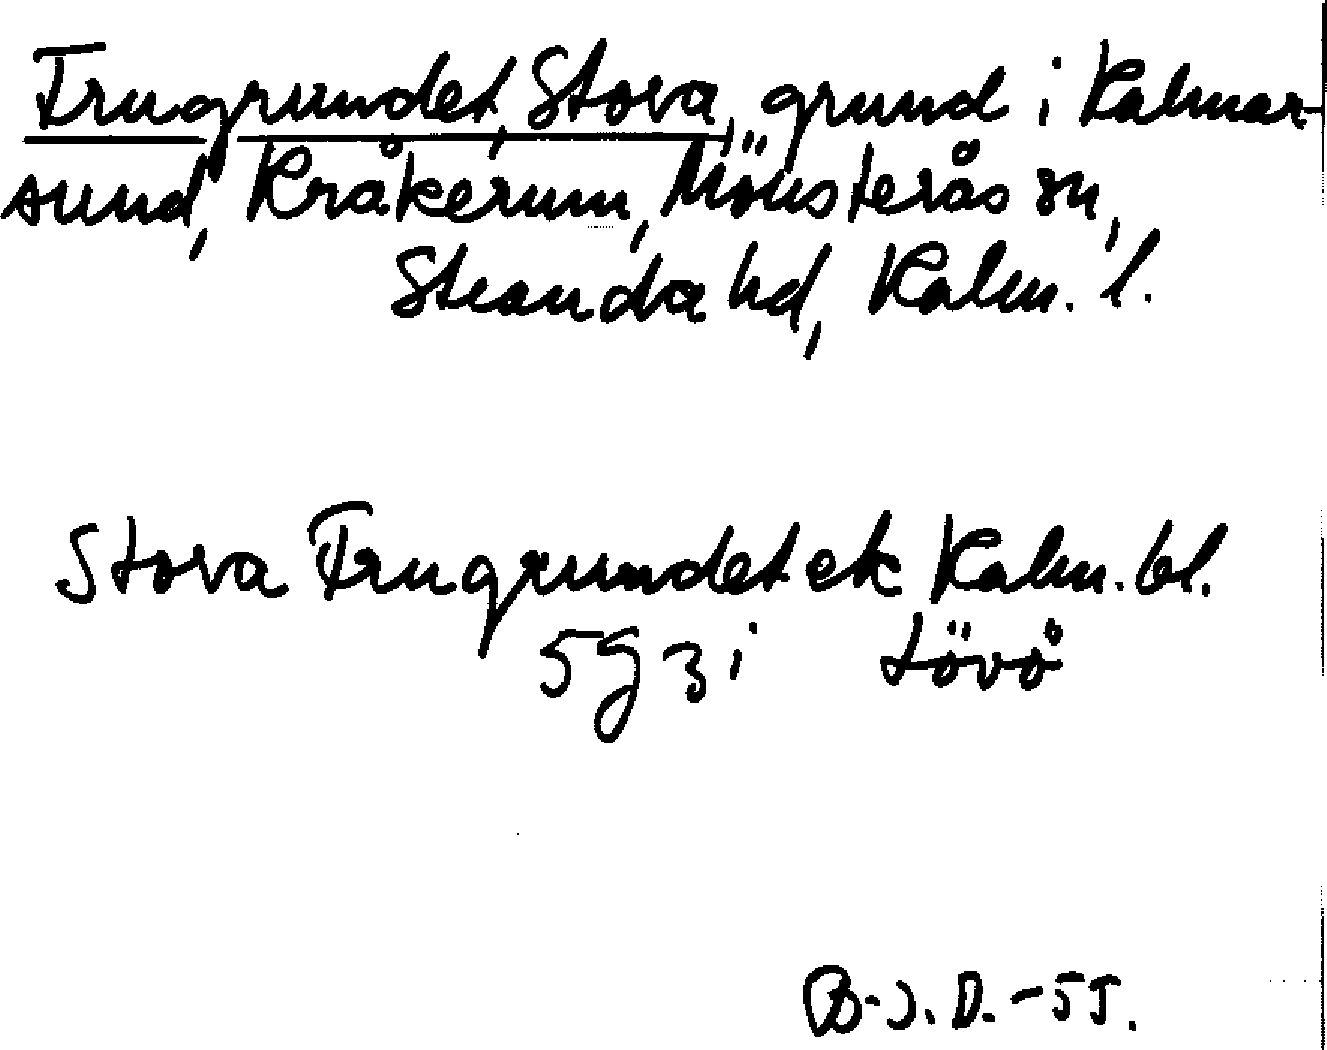 Frugrundet, Stora, grund i Kalmar-
sund, Kråkerum, Mönsterås sn,
Stranda hd, Kalm. l.
Stora Frugrundet ek Kalm. bl.
5g3i Lövö
B-J.D.-55.